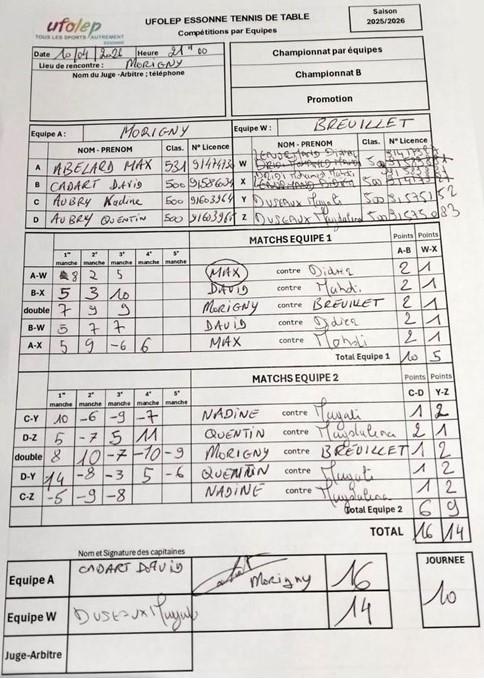 ufolep
TOUS LES SPORTS AUTREMENT
ESSONNE
UFOLEP ESSONNE TENNIS DE TABLE
Compétitions par Equipes
Saison
2025/2026
Date 10/04/2026 Heure 21H00
Lieu de rencontre : MORIGNY
Nom du Juge-Arbitre ; téléphone
Championnat par équipes
Championnat B
Promotion
Equipe A : MORIGNY Equipe W : BREUILLET
NOM - PRENOM Clas. N° Licence NOM - PRENOM Clas. N° Licence
A ABELARD MAX 531 W 500
B CADART David 500 X 500
C AUBRY Nadine 500 Y DUSEAUX Magali 500
D AUBRY QUENTIN 500 Z DUSEAUX Magdalena 500
1re manche 2e manche 3e manche 4e manche 5e manche MATCHS EQUIPE 1 Points A-B Points W-X
A-W 8 2 5 MAX contre Didier 2 1
B-X 5 3 10 DAVID contre Mahdi 2 1
double 7 9 9 MORIGNY contre BREUILLET 2 1
B-W 5 7 7 DAVID contre Didier 2 1
A-X 5 9 -6 6 MAX contre Mahdi 2 1
Total Equipe 1 10 5
1re manche 2e manche 3e manche 4e manche 5e manche MATCHS EQUIPE 2 Points C-D Points Y-Z
C-Y 10 -6 -9 -7 NADINE contre Magali 1 2
D-Z 5 -7 5 11 QUENTIN contre Magdalena 2 1
double 8 10 -7 -10 -9 MORIGNY contre BREUILLET 1 2
D-Y 14 -8 -3 5 -6 QUENTIN contre Magali 1 2
C-Z -5 -9 -8 NADINE contre Magdalena 1 2
Total Equipe 2 6 9
TOTAL 16 14
Nom et Signature des capitaines
Equipe A CADART DAVID Morigny 16
Equipe W DUSEAUX Magali 14
Juge-Arbitre
JOURNEE
10